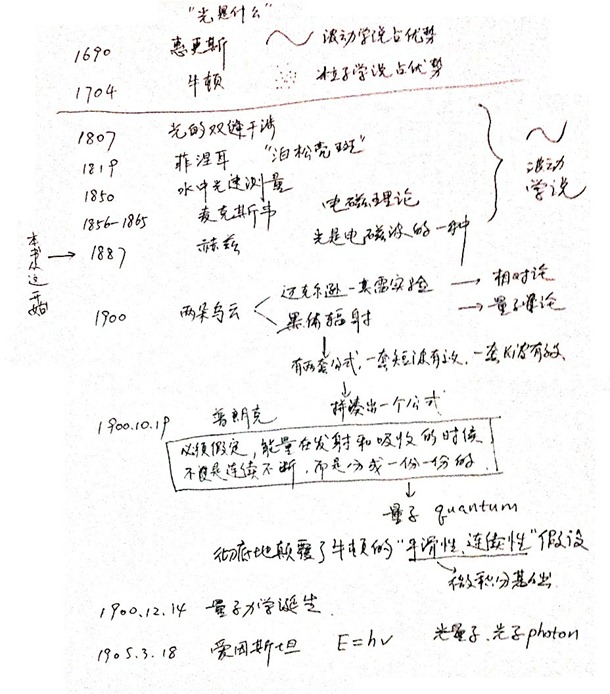 "光是什么"
1690 惠更斯 波动学说占优势
1704 牛顿 粒子学说占优势
1807 光的双缝干涉
1819 菲涅耳 "泊松亮斑"
1850 水中光速测量
1856-1865 麦克斯韦 电磁理论
1887 赫兹 光是电磁波的一种
波动学说
本书从这开始
1900 两朵乌云
迈克尔逊-莫雷实验 → 相对论
黑体辐射 → 量子理论
有两套公式,一套短波有效,一套长波有效
拼凑出一个公式
1900.10.19 普朗克
必须假定,能量在发射和吸收的时候
不是连续不断,而是分成一份一份的.
量子 quantum
彻底地颠覆了牛顿的"平滑性、连续性"假设
微积分基础
1900.12.14 量子力学诞生.
1905.3.18 爱因斯坦 E=hν 光量子.光子photon